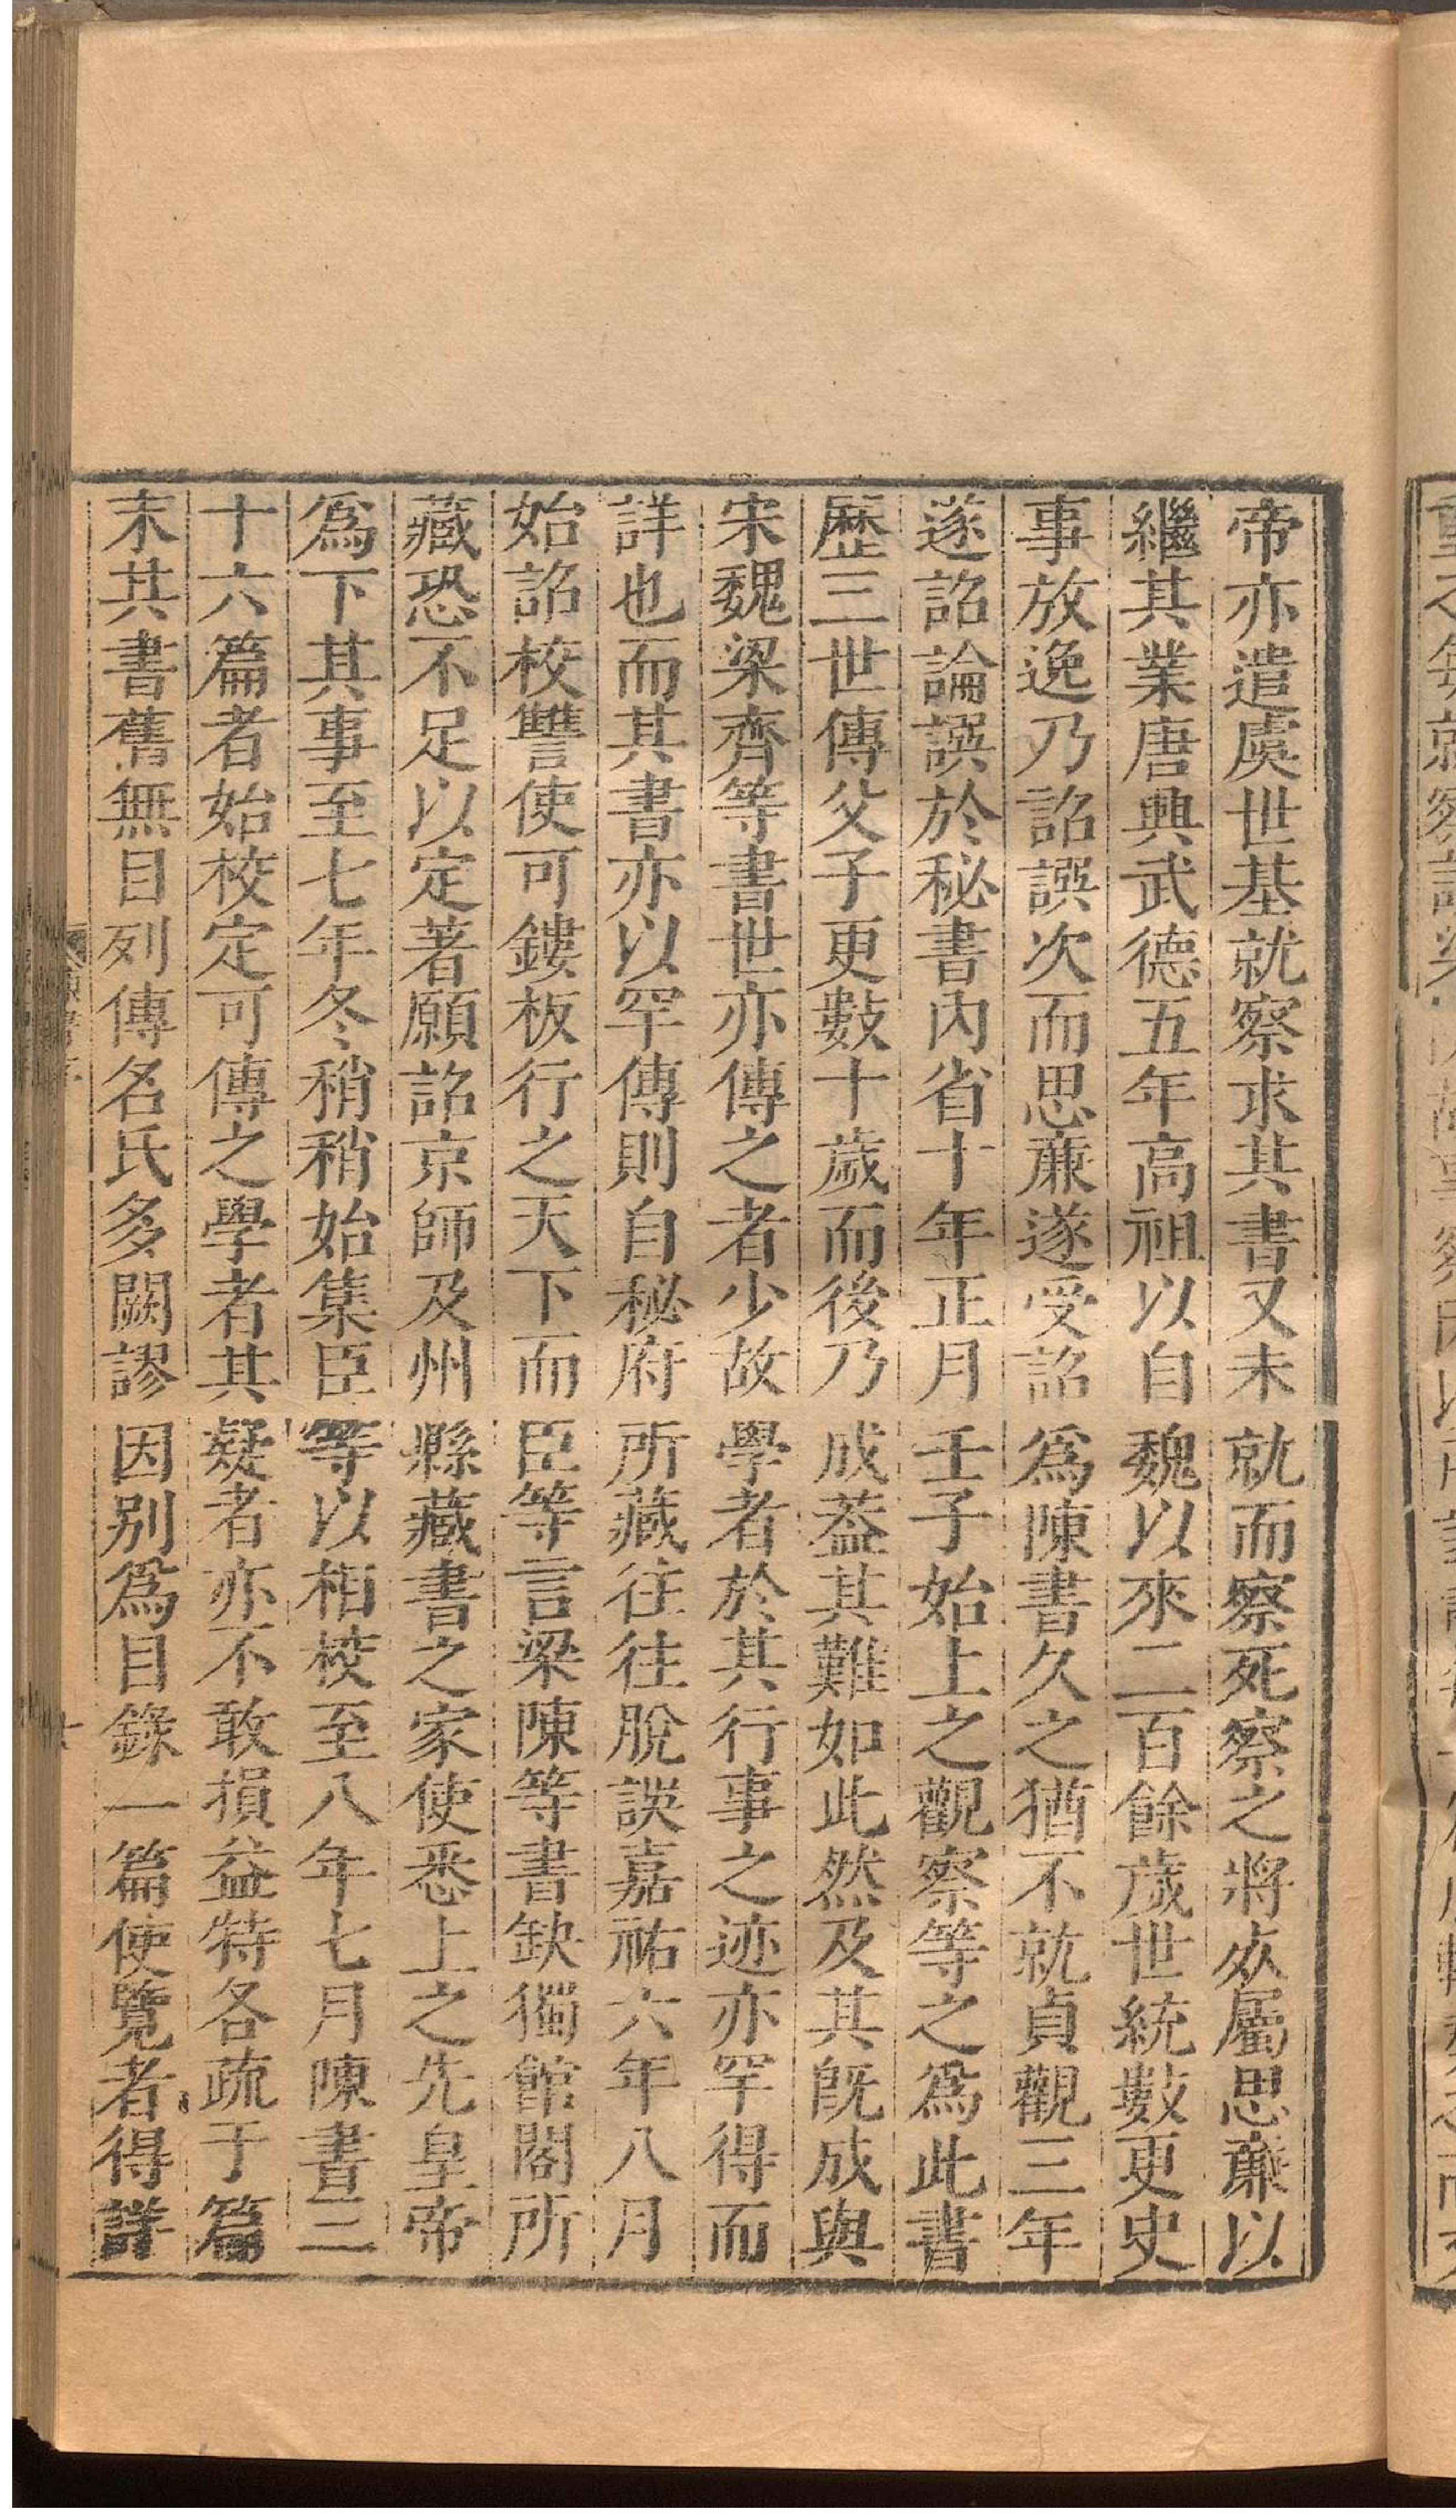 帝亦遣虞世基就察求其書又未就而察死察之將死屬思廉以
繼其業唐興武德五年高祖以自魏以來二百餘歲世統數更史
事放逸乃詔譔次而思廉遂受詔爲陳書久之猶不就貞觀三年
遂詔論譔於秘書內省十年正月壬子始上之觀察等之爲此書
歷三世傳父子更數十歲而後乃成葢其難如此然及其旣成與
宋魏梁齊等書世亦傳之者少故學者於其行事之迹亦罕得而
詳也而其書亦以罕傳則自秘府所藏往往脫誤嘉祐六年八月
始詔校讐使可鏤板行之天下而臣等言梁陳等書缺獨館閣所
藏恐不足以定著願詔京師及州縣藏書之家使悉上之先皇帝
爲下其事至七年冬稍稍始集臣等以相校至八年七月陳書三
十六篇者始校定可傳之學者其疑者亦不敢損益特各疏于篇
末其書舊無目列傳名氏多闕謬因别爲目錄一篇使覽者得詳